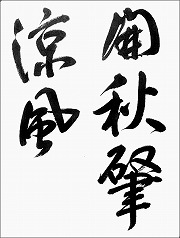 開秋肇
涼風